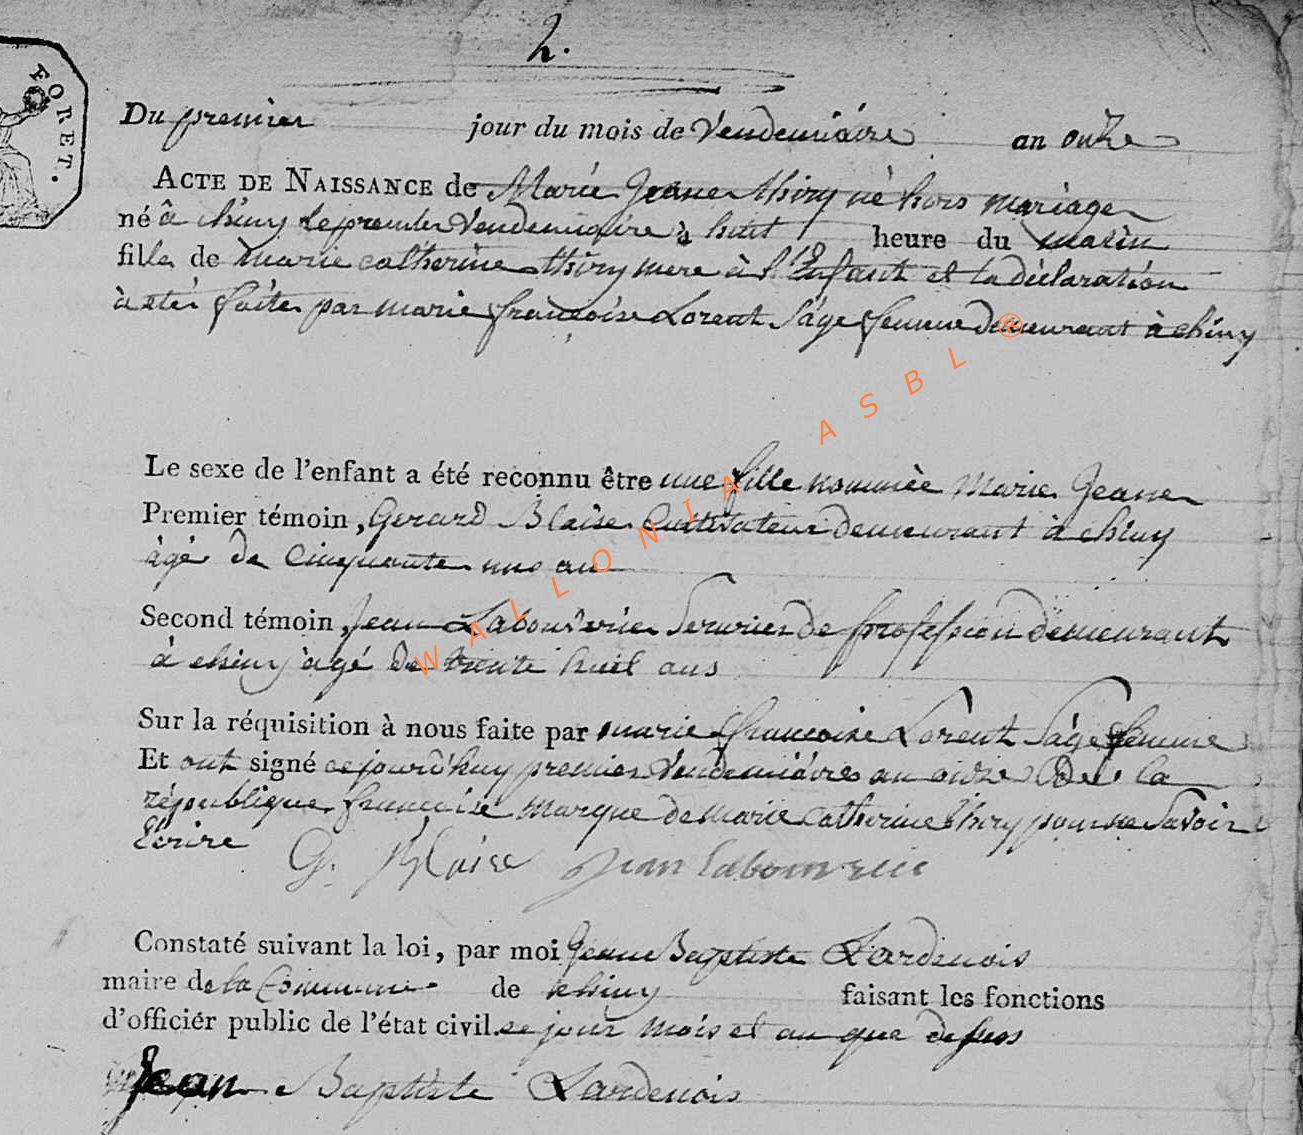 2.
FORET.
Du premier jour du mois de Vendemiaire an onze
ACTE DE NAISSANCE de Marie Jeane thiry né hors mariage
né â chiny le premier Vendemiaire à huit heure du matin
fille de marie catherine thiry mere à l'Enfant et la déclaration
à etéi faite par marie françoise Lorent Ságe femme demeurant à chiny
Le sexe de l'enfant a été reconnu être une fille nommèe Marie Jeane
Premier témoin, Gerard Blaise Cultivateur demeurant à chiny
âgé de Cinquante un an
Second témoin, Jean Labouverie Serurier de proffession demeurant
à chiny agé de trente huit ans
Sur la réquisition à nous faite par marie francoise Lorent Ságe femme
Et ont signé ce jourd'huy premier Vendemiáire an onze De la
république francaise marque de marie catherine thiry pour ne Savoir
Ecrire G. Blaise Jean labouverie
Constaté suivant la loi, par moi Jean Baptiste Lardenois
maire de la Commune de chiny faisant les fonctions
d'officier public de l'état civil. se jour mois et an que dessus
Jean Baptiste Lardenois
WALLONIA ASBL ®